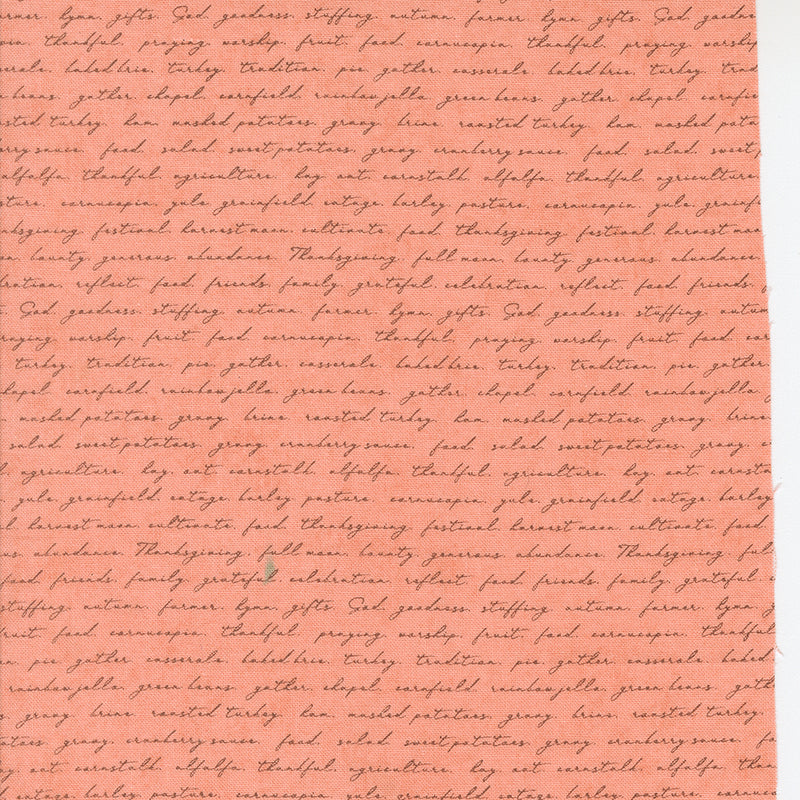 hymn. gifts. God. goodness. stuffing. autumn. farmer. hymn. gifts. God.
thankful. praying. worship. fruit. food. cornucopia. thankful. praying. worship
baked brie. turkey. tradition. pie. gather. casserole. baked brie. turkey.
beans. gather. chapel. cornfield. rainbow jello. green beans. gather. chapel.
turkey. ham. mashed potatoes. gravy. brine. roasted turkey. ham. mashed
sauce. food. salad. sweet potatoes. gravy. cranberry sauce. food. salad. sweet
alfalfa. thankful. agriculture. hay. oat. cornstalk. alfalfa. thankful. agriculture.
cornucopia. yule. grainfield. eatage. barley. pasture. cornucopia. yule.
festival. harvest moon. cultivate. food. thanksgiving. festival. harvest
bounty. generous. abundance. Thanksgiving. full moon. bounty. generous. abundance.
reflect. food. friends. family. grateful. celebration. reflect. food. friends.
God. goodness. stuffing. autumn. farmer. hymn. gifts. God. goodness. stuffing.
worship. fruit. food. cornucopia. thankful. praying. worship. fruit. food.
turkey. tradition. pie. gather. casserole. baked brie. turkey. tradition. pie. gather.
cornfield. rainbow jello. green beans. gather. chapel. cornfield. rainbow jello.
mashed potatoes. gravy. brine. roasted turkey. ham. mashed potatoes. gravy. brine
salad. sweet potatoes. gravy. cranberry sauce. food. salad. sweet potatoes. gravy.
agriculture. hay. oat. cornstalk. alfalfa. thankful. agriculture. hay. oat.
yule. grainfield. eatage. barley. pasture. cornucopia. yule. grainfield. eatage. barley
harvest moon. cultivate. food. thanksgiving. festival. harvest moon. cultivate. food
abundance. Thanksgiving. full moon. bounty. generous. abundance. Thanksgiving.
food. friends. family. grateful. celebration. reflect. food. friends. family. grateful.
stuffing. autumn. farmer. hymn. gifts. God. goodness. stuffing. autumn. farmer. hymn.
fruit. food. cornucopia. thankful. praying. worship. fruit. food. cornucopia. thankful
pie. gather. casserole. baked brie. turkey. tradition. pie. gather. casserole. baked
rainbow jello. green beans. gather. chapel. cornfield. rainbow jello. green beans.
gravy. brine. roasted turkey. ham. mashed potatoes. gravy. brine. roasted turkey.
gravy. cranberry sauce. food. salad. sweet potatoes. gravy. cranberry sauce.
oat. cornstalk. alfalfa. thankful. agriculture. hay. oat. cornstalk. alfalfa.
eatage. barley. pasture. cornucopia. yule. grainfield. eatage. barley. pasture.